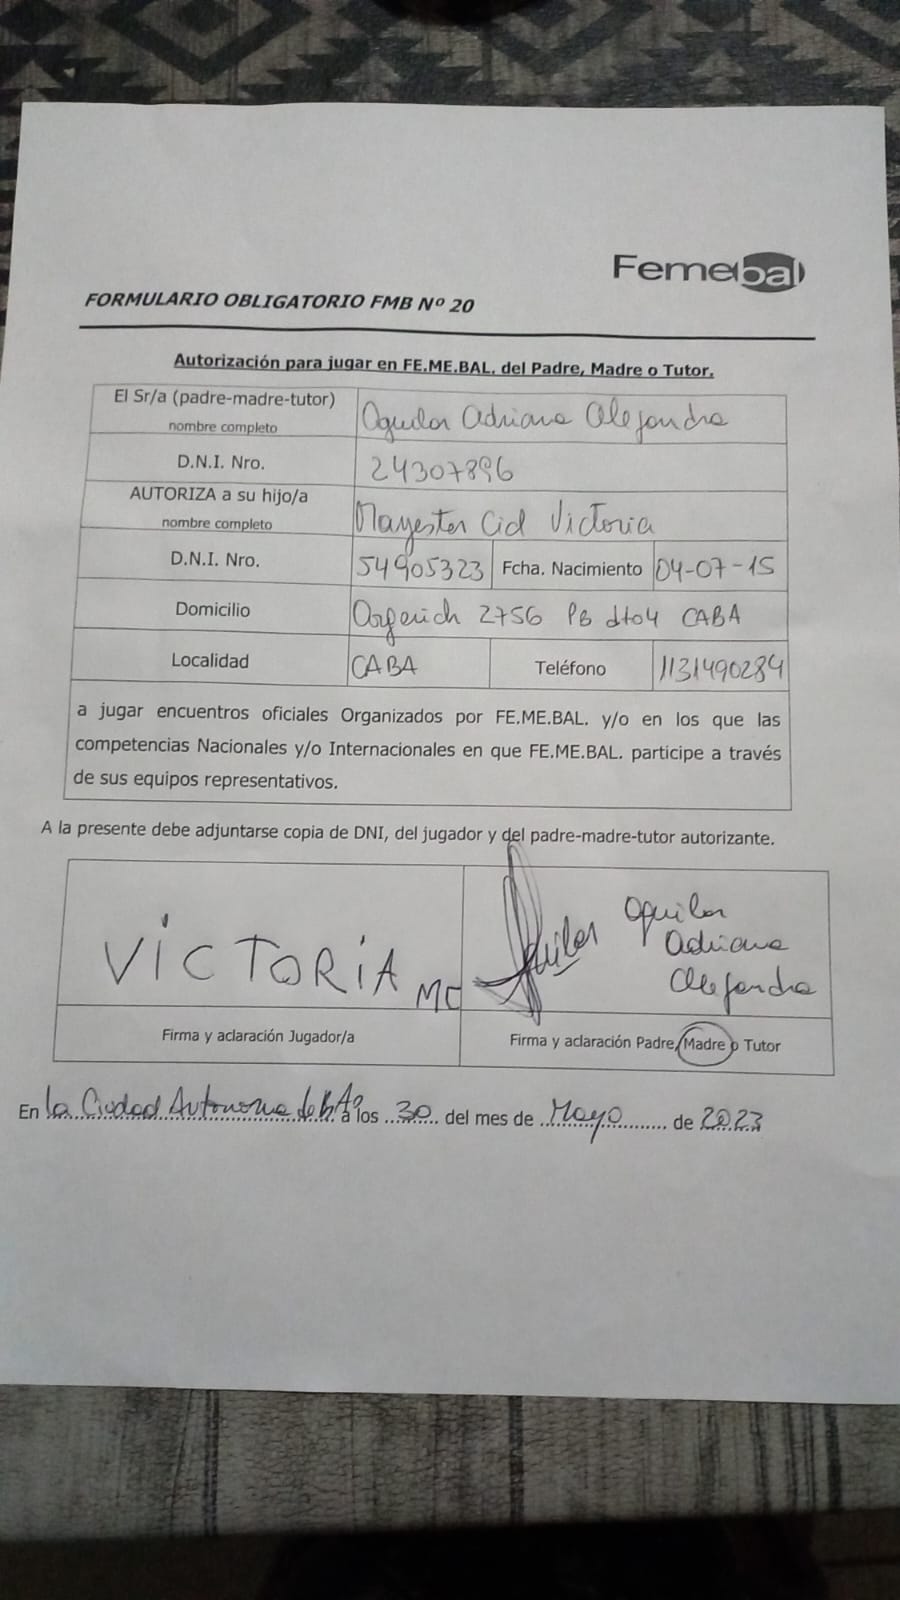 Femebal
FORMULARIO OBLIGATORIO FMB Nº 20
Autorización para jugar en FE.ME.BAL. del Padre, Madre o Tutor.
El Sr/a (padre-madre-tutor)
nombre completo
Aguilar Adriana Alejandra
D.N.I. Nro.
24307896
AUTORIZA a su hijo/a
nombre completo
Mayester Cid Victoria
D.N.I. Nro.
54905323
Fcha. Nacimiento
04-07-15
Domicilio
Argerich 2756 PB dto4 CABA
Localidad
CABA
Teléfono
1131490284
a jugar encuentros oficiales Organizados por FE.ME.BAL. y/o en los que las
competencias Nacionales y/o Internacionales en que FE.ME.BAL. participe a través
de sus equipos representativos.
A la presente debe adjuntarse copia de DNI, del jugador y del padre-madre-tutor autorizante.
VICTORIA MC
Aguilar
Aguilar
Adriana
Alejandra
Firma y aclaración Jugador/a
Firma y aclaración Padre, Madre o Tutor
En la Ciudad Autonoma de a los 30 del mes de Mayo de 2023